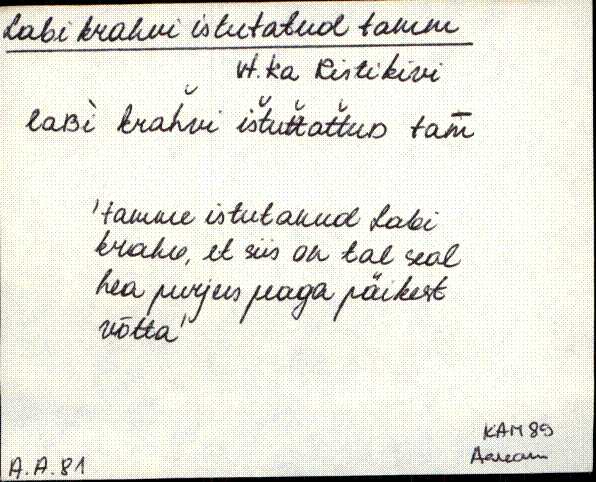 Labi krahvi istutatud tamm
vt. ka Ristikivi
laʙì krahv̆i ištuťtaťtuᴅ tam̄
'tamme istutanud Labi
krahv, et siis on tal seal
hea purjus peaga päikest
võtta'
KAM 89
A.A. 81